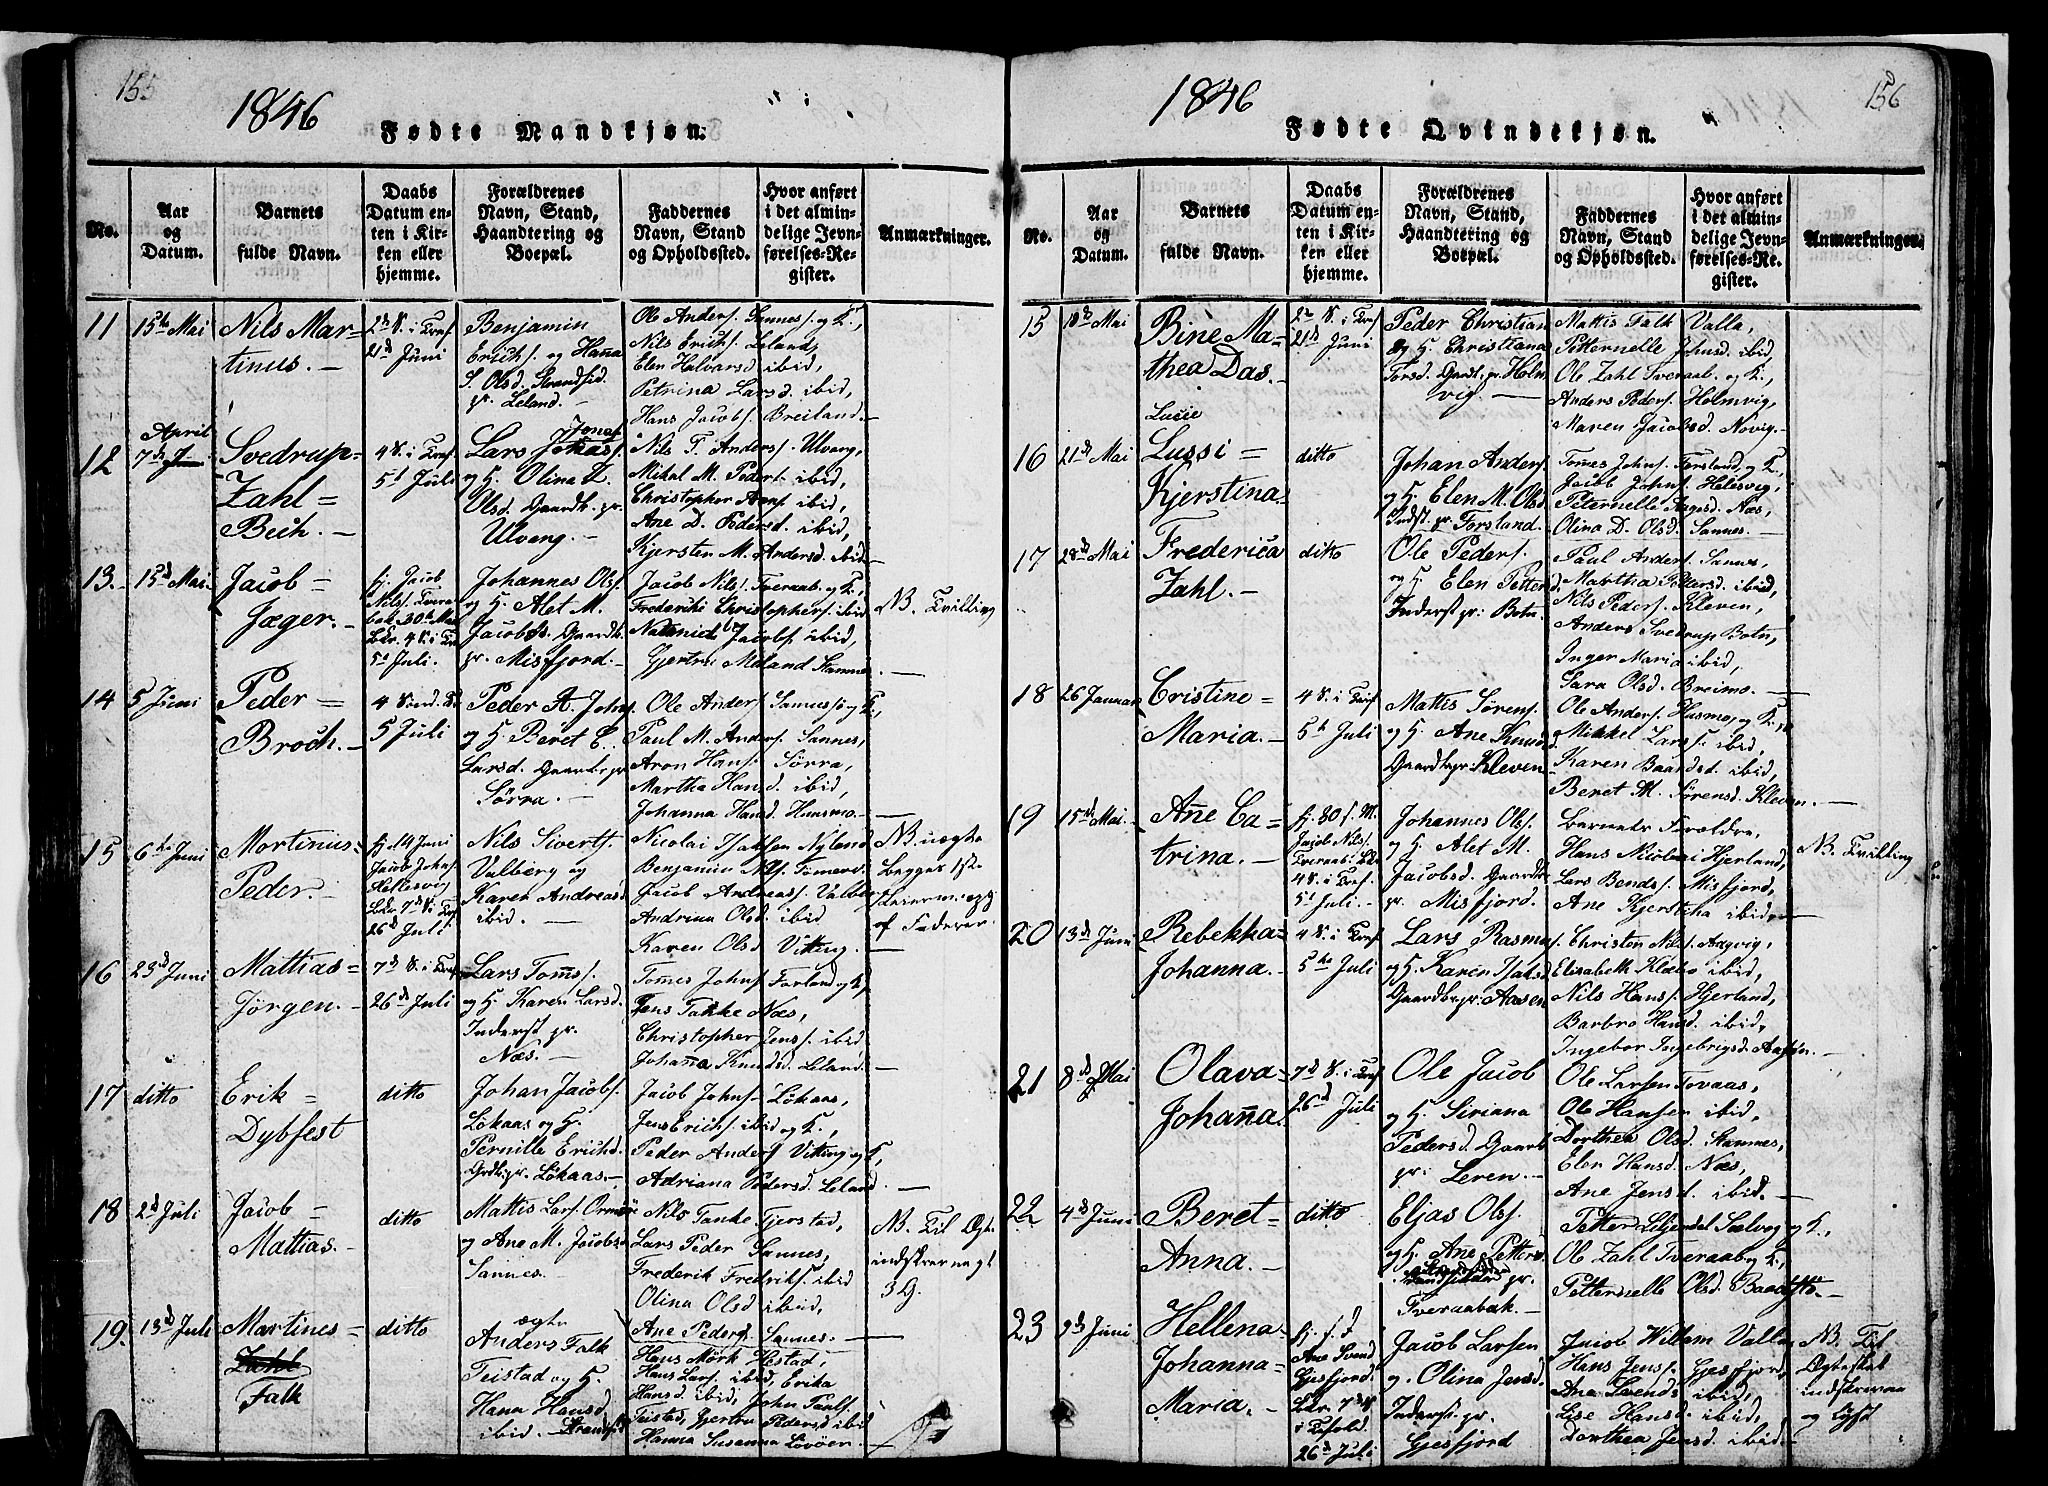 155
1846
Fødte Mandkjøn.
No.
Aar og Datum.
Barnets fulde Navn.
Daabs Datum enten i Kirken eller hjemme.
Forældrenes Navn, Stand, Haandtering og Boepæl.
Faddernes Navn, Stand og Opholdssted.
Hvor anført i det almindelige Jevnførelses-Register.
Anmærkninger.
11
15de Mai
Nils Mar-
tinus. -
21d Juni
Benjamin
Erichs. og Hana
S. Olsd.
pr. Leland. -
Ole Anders. Sannes. og K.,
Nils Erichs. Leland,
Elen Halvarsd ibid,
Petrina Larsd ibid,
Hans Jacobs. Breiland. -
12
April
7de
Svedrup-
Zahl =
Bech. -
5d Juli
Lars Jonas.
og H. Olina Z.
Olsd. Gaardb. pr.
Ulvang. -
Nils T. Anders. Ulvang,
Mikal M. Peders. ibid,
Christopher Arnf ibid,
Ane D. Pedersd. ibid,
Kjersten M. Andersd. ibid -
13.
15d Mai
Jacob =
Jæger. -
hj. Jacob
Nils. Tveraa-
bak. 30te Mai
Bekr. 4 S. i
5d Juli.
Johannes Ols.
og H. Alet M.
Jacobsd. Gaardb.
pr. Misfjord. -
Jacob Nils. Tveraab. og K,
Frederiki Christophers. ibid
Nathniel Jacobs. ibid,
Gjertru Meland Stamnes. -
NB. Tvilling
14
5 Juni
Peder =
Broch. -
5 Juli
Peder A. Johns.
og H. Beret E.
Larsd. Gaardb. pr
Sørra. -
Ole Anders. Sannes og K,
Paul M. Anders. Sannes,
Aron Hans. Sørra,
Martha Hansd. ibid,
Johanna Hansd. Husmo. -
15
6te Juni
Mortinus
Peder. -
hj. 14 Juni
Jacob Johs.
Hellesvig
Bekr. 7de S. i
26d Juli
Nils Siverts.
Valberg og
Karen Andreasd
ibid. -
Nicolai Isaksen Nyland
Benjamin Nils.
Jacob Andreass. Valber
Andrina Olsd ibid
Karen Olsd Vitting. -
NB. uægte
begges 1ste
af Faderen.
16
23d Juni
Mattias =
Jørgen. -
26d Juli
Lars Toms.
og H. Karen Larsd.
Inderst pr.
Næs. -
Tomes Johns. Forland og K,
Jens Tanke Næs,
Christopher Jens. ibid
Johana Knudsd. Leland. -
17
ditto
Erik =
Dybfest
ditto
Johan Jacobs.
Løkaas og H.
Pernille Erichd.
Grdb. pr. Løkaas. -
Jacob Johns. Løkaas,
Jens Erichs. ibid og K.,
Peder Anders. Vitting og K,
Adriana Pedersd. Leland. -
18
2d Juli
Jacob =
Mattias. -
ditto
Mattis Lars.
og Ane M. Jacobs
Sannes. -
Nils Tanke Tjerstad,
Lars Peder Sannes,
Frederik Fredriks. ibid
Olina Olsd ibid,
Ane Pedersd. Sannes. -
NB. Til Ægte
19.
13d Juli
Martines =
Zahl
Falk
ditto
ægte
Anders Falk
Teistad og H.
Hana Hansd
ibid. -
Hans Mörk Hestad,
Hans Lars. ibid, Erika
Hansd. ibid, John Pauls.
Teistad, Gjertru Pedersd ibid
Hanna Susanna Lövöen. -
156
1846
Fødte Qvindekjøn.
No.
Aar og Datum.
Barnets fulde Navn.
Daabs Datum enten i Kirken eller hjemme.
Forældrenes Navn, Stand, Haandtering og Boepæl.
Faddernes Navn, Stand og Opholdssted.
Hvor anført i det almindelige Jevnførelses-Register.
Anmærkninger.
15
18de Mai
Bine Ma-
thea Das. -
21d Juni
Peder Christian
og H. Christiana
Torsd. Gaardb. pr. Holm
vig. -
Mattis Falk Valla,
Petternelle Johnsd. ibid,
Ole Zahl Sveraab. og K,
Anders Peders. Holmvig,
Maren Jacobsd. Novig. -
16
21de Mai
Lucie
Lussi =
Kjerstina.
ditto
Johan Anders.
og H. Elen M. Olsd.
Indst. pr. Forsland.
Tomes Johns. Forsland, og K,
Jacob Johns. Helesvig,
Peternelle Aagesd. Næs,
Olina D. Olsd. Sannes. -
17
28de Mai
Frederica
Zahl. -
ditto
Ole Peders.
og H. Elen Petters
Inderst pr: Botn
Paul Anders. Sannes,
Martha Pettersd. ibid,
Nils Peders. Kleven,
Anders Svedrup Botn,
Inger Maria ibid,
Sara Olsd. Breimo. -
18
26 Januar
Cristine =
Maria. -
5te Juli
Mattis Sørens.
og H. Ane Knuds
Gaardb. pr. Kleven
Ole Anders. Husmo, og K.
Mikkel Lars. ibid,
Karen Baardsd. ibid,
Beret M. Sørensd. Kleven. -
19
15de Mai.
Ane Ca =
trina. -
hj. 30 f. M.
Jacob Nils.
Tveraab. Bekr.
4 S. i
5d Juli. -
Johannes Ols.
og H. Alet M.
Jacobsd. Gaardbr
pr. Misfjord.
Barnets Forældre,
Hans Nicolai Hjerland,
Lars Bends. Misfjord,
Ane Kjerstina ibid. -
NB. Tvilling
20
13d Juni
Rebekka =
Johanna. -
5te Juli
Lars Rasmus.
og H. Karen Isaksd.
Gaardbr. pr. Aasen
Christen Nils. Aagvig,
Elisabeth Klæbo ibid,
Nils Hans. Hjerland,
Barbro Hansd. ibid,
Ingebor Ingebrigsd. Aasen. -
21
8de Mai
Olava =
Johana.
26d Juli
Ole Jacob
og H. Siriana
Pedersd. Gaardb
pr. Leren. -
Ole Larsen Tovaas,
Ole Hansen ibid,
Dorthea Olsd. Stamnes,
Elen Hansd. Næs,
Ane Jens. ibid. -
22
4de Juni
Beret =
Anna. -
ditto
Eljas Ols.
og H. Ane Petters.
pr.
Tveraabak. -
Petter Liljendal Sælvog og K.,
Ole Zahl Tveraab. og K,
Petternelle Olsd. -
23
9de Juni
Hellena
Johanna =
Maria. -
Ane Svend
Gjesfjord,
Bekr. 7de S
26d Juli
Jacob Larsen
og Olina Jensd.
Inderst pr.
Gjesfjord
Jacob Willam Valla
Hans Jens. Gjesfjord,
Ane Svends ibid,
Lise Hansd. ibid,
Dorthea Jensd. ibid. -
NB. Til
Ægteskab
indskrevne
og lyst